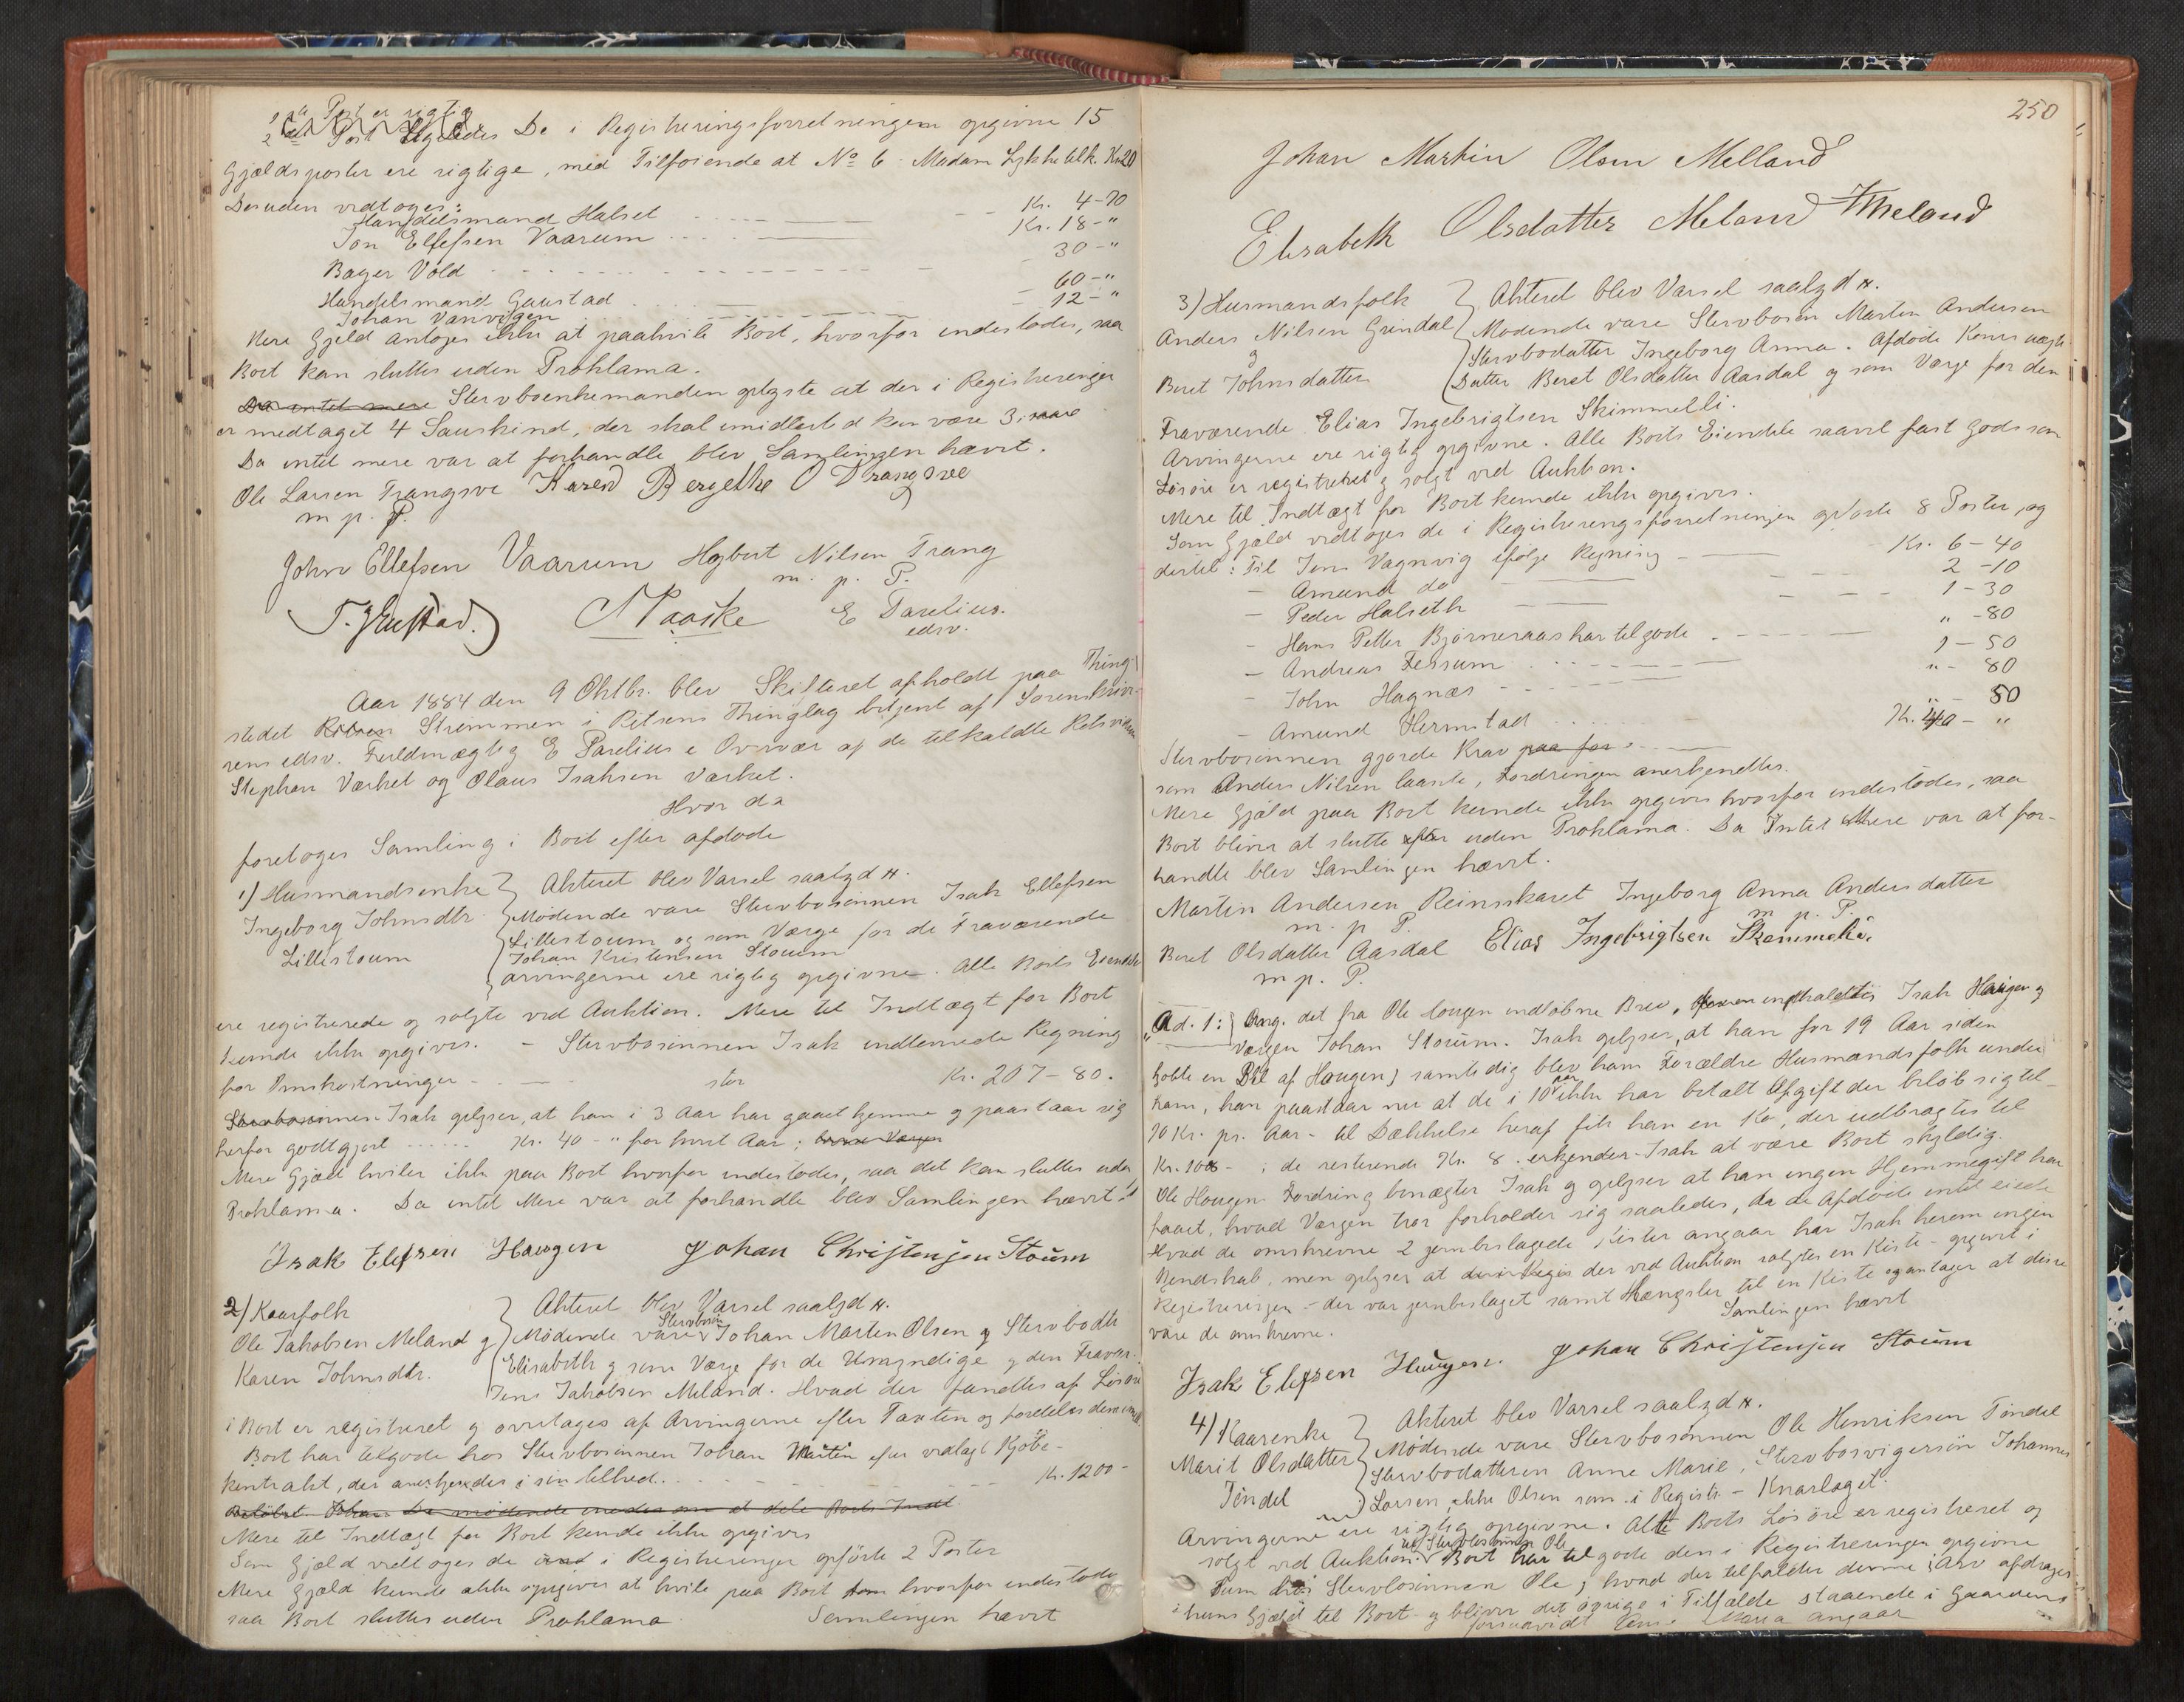 Post er rigtig
2 Post ligeledes De i Registreringsforretningen opgivne 15
Gjældsposter ere rigtige, med Tilføiende at No 6 Madam Lykke tilk. Kr 20
Desuden vedtoges:
Handelsmand Halset Kr. 4-70
Jon Ellefsen Vaarum Kr. 18-"
Bager Vold 30-"
Handelsmand Gaustad 60-"
Johan Vanvigen 12-"
Mere Gjeld antoges ikke at paahvile Boet, hvorfor indestodes, saa
Boet kan sluttes uden Proklama.
Da intet mere Stervboenkemanden oplyste at der i Registreringen
er medtaget 4 Saueskind, der skal imidlertid kun være 3;
Da intet mere var at forhandle blev Samlingen hævet.
Ole Larsen Trangsve Karen Bergethe O Drangsve
m p. P.
John Ellefsen Vaarum Hogbert Nilsen Trang
m. p. P.
Maaske E Parelius.
edsv.
Aar 1884 den 9 Oktbr. blev Skifteret afholdt paa Thing-
stedet Ritsen Strømmen i Ritsens Thinglag betjent af Sorenskrive-
rens edsv. Fuldmægtig E Parelius i Overvær af de tilkaldte Retsvidner
Stephan Værket og Olaus Isaksen Værket.
Hvor da
foretoges Samling i Boet efter afdøde
1) Husmandsenke Akteret blev Varsel saalyd #.
Ingeborg Johnsdtr. Mødende vare Stervbosønnen Isak Ellefsen
Lillestoum Lillestoum og som Værge for de Fraværende
Johan Kristensen Stoum
arvingerne ere rigtig opgivne. Alle Boets Eiendele
ere registrerede og solgte ved Auktion. Mere til Indtægt for Boet
kunde ikke opgives. - Stervbosønnen Isak indleverede Regning
for Omkostninger stor Kr. 207-80.
Stervbosønnen Isak oplyser, at han i 3 Aar har gaaet hjemme og paastaar sig
herfor godtgjort Kr. 40-" for hvert Aar;
Mere Gjæld hviler ikke paa Boet hvorfor indestodes, saa det kan sluttes uden
Proklama. Da intet Mere var at forhandle blev Samlingen hævet
Isak Elefsen Haugen Johan Christensen Stoum
2) Kaarfolk Akteret blev Varsel saalyd #.
Ole Jakobsen Meland og Mødende vare Stervbosøn Johan Martin Olsen og Stervbodtr
Karen Johnsdtr. Elisabeth og som Værge for de Umyndige og den Fravær.
Jens Jakobsen Meland. Hvad der fandtes af Løsøre
i Boet er registreret og overtages af Arvingerne efter Taxten og fordeles dem imell.
Boet har tilgode hos Stervbosønnen Johan Martin efter vedlagt Kjøbe-
kontrakt, der anerkjendes i sin helhed. Kr. 1200-
Beløbet Johan De mødende enedes om at dele Boets Indt.
Mere til Indtægt for Boet kunde ikke opgives
Som Gjæld vedtoges de i Registreringen opførte 2 Poster
Mere Gjæld kunde ikke opgives at hvile paa Boet hvorfor indestodes
saa Boet sluttes uden Proklama. Samlingen hævet
250
Johan Martin Olsen Melland
Elisabeth Olsdatter Meland
3) Husmandsfolk Akteret blev Varsel saalyd #.
Anders Nilsen Grindal Mødende vare Stervbosøn Martin Andersen
og Stervbodatter Ingeborg Anna. Afdøde Kones uægte
Beret Johnsdatter Datter Beret Olsdatter Aasdal og som Værge for den
Fraværende Elias Ingebrigtsen Skimmelli.
Arvingerne ere rigtig opgivne. Alle Boets Eiendele saavel fast Gods som
Løsøre er registreret og solgt ved Auktion.
Mere til Indtægt for Boet kunde ikke opgives.
Som Gjæld vedtoges de i Registreringsforretningen opførte 8 Poster, og
dertil: Til Jens Vagnvig ifølge Regning Kr. 6-40
- Amund do 2-10
- Peder Halseth 1-30
- Hans Petter Bjørneraas har tilgode " -80
- Andreas Fessum 1-50
- John Hagnæs " - 80
- Amund Hermstad " - 50
Stervbosønnen gjorde Krav paa for Kr. 40-"
som Anders Nilsen laante, Fordringen anerkjendtes.
Mere Gjæld paa Boet kunde ikke opgives hvorfor indestodes, saa
Boet bliver at slutte uden Proklama. Da Intet Mere var at for-
handle blev Samlingen hævet.
Martin Andersen Reinskaret Ingeborg Anna Andersdatter
m. p. P. m p. P.
Beret Olsdatter Aasdal Elias Ingebrigtsen Skemmeli.
m p. P.
Ad. 1: Ang. det fra Ole Hougen indløbne Brev, Isak Haugen og
Værgen Johan Stoum. Isak oplyser, at han for 19 Aar siden
kjøbte en Del af Haugen, samtidig blev hans Forældre Husmandsfolk under
ham, han paastaar nu at de i 10 Aar ikke har betalt Afgift der beløb sig til
10 Kr. pr. Aar - til Dækkelse heraf fik han en Ko, der udbragtes til
Kr. 108- ; de resterende Kr. 8. erkjender Isak at være Boet skyldig.
Ole Hougens Fordring benægter Isak og oplyser at han ingen Hjemmegift har
faaet, hvad Værgen tror forholder sig saaledes, da de Afdøde intet eiede
Hvad de omskrevne 2 jernbeslagede Kister angaar har Isak herom ingen
Kendskab, men oplyser at der ved Auktion solgtes en Kiste - opgivet i
Registreringen - der var jernbeslaget samt Hængsler til en Kiste og antager at disse
være de omskrevne. Samlingen hævet
Isak Elefsen Haugen. Johan Christensen Stoum
4) Kaarenke Akteret blev Varsel saalyd #.
Marit Olsdatter Mødende vare Stervbosønnen Ole Henriksen Tindel
Tindel Stervbodatteren Anne Marie, Stervbosvigersøn Johannes
Larsen, ikke Olsen som i Registr. - Knarlaget.
Arvingerne ere rigtig opgivne. Alt Boets Løsøre er registreret og
solgt ved Auktion. Boet har tilgode den i Registreringen opgivne
Sum hos Stervbosønnen Ole, hvad der tilfalder denne i Arv afdrages
i hans Gjæld til Boet og bliver det øvrige i Tilfælde staaende i Gaarden
forsaavidt Anne Maria angaar